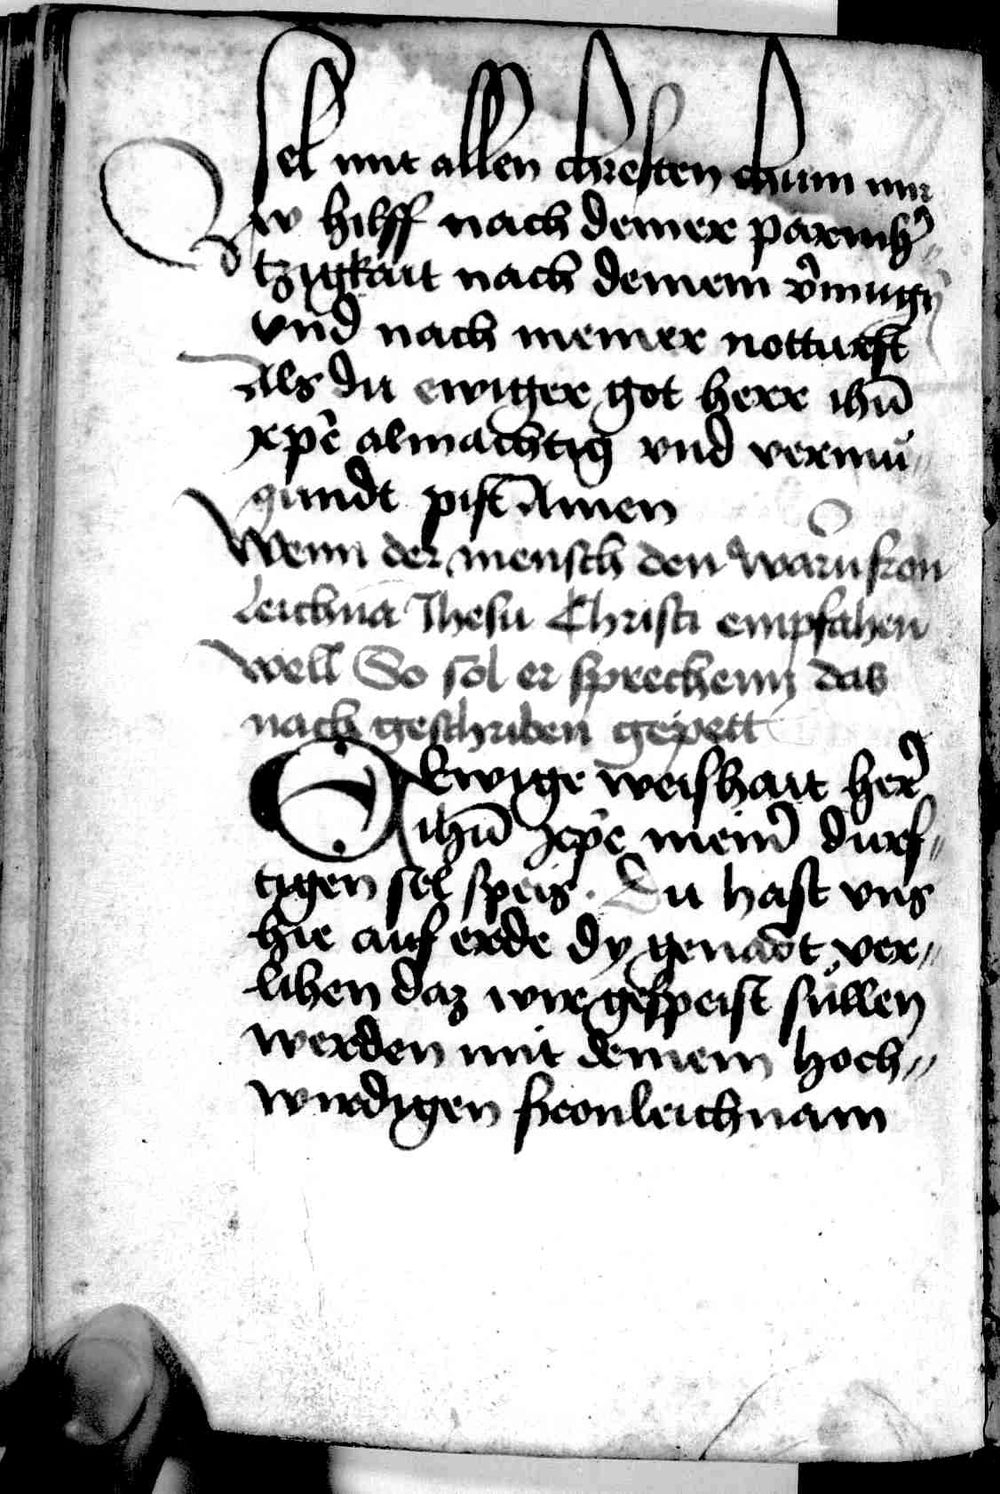 sel mit allen chresten chum mir
zw hilff nach deiner parmhʾ„
tzigkait nach deinem vʾmugn̄
vnd nach meiner notturft
Als du ewiger got herr ihū
xp̄e almächtig vnd vermu„
gundt pist Amen
Wenn der mensch den warn̄ fron
leichna᷃ Jhesu Christi empfahen
well So sol er sprechenn das
nach geschriben gepett
O Ewige weishait herʾ
ihū xp̄e meinʾ durf„
tigen sel speis. Du hast vns
hie auf erde dy genadt ver„
lihen daz wir gespeist süllen
werden mit deinem hoch„
wirdigen fronleichnam